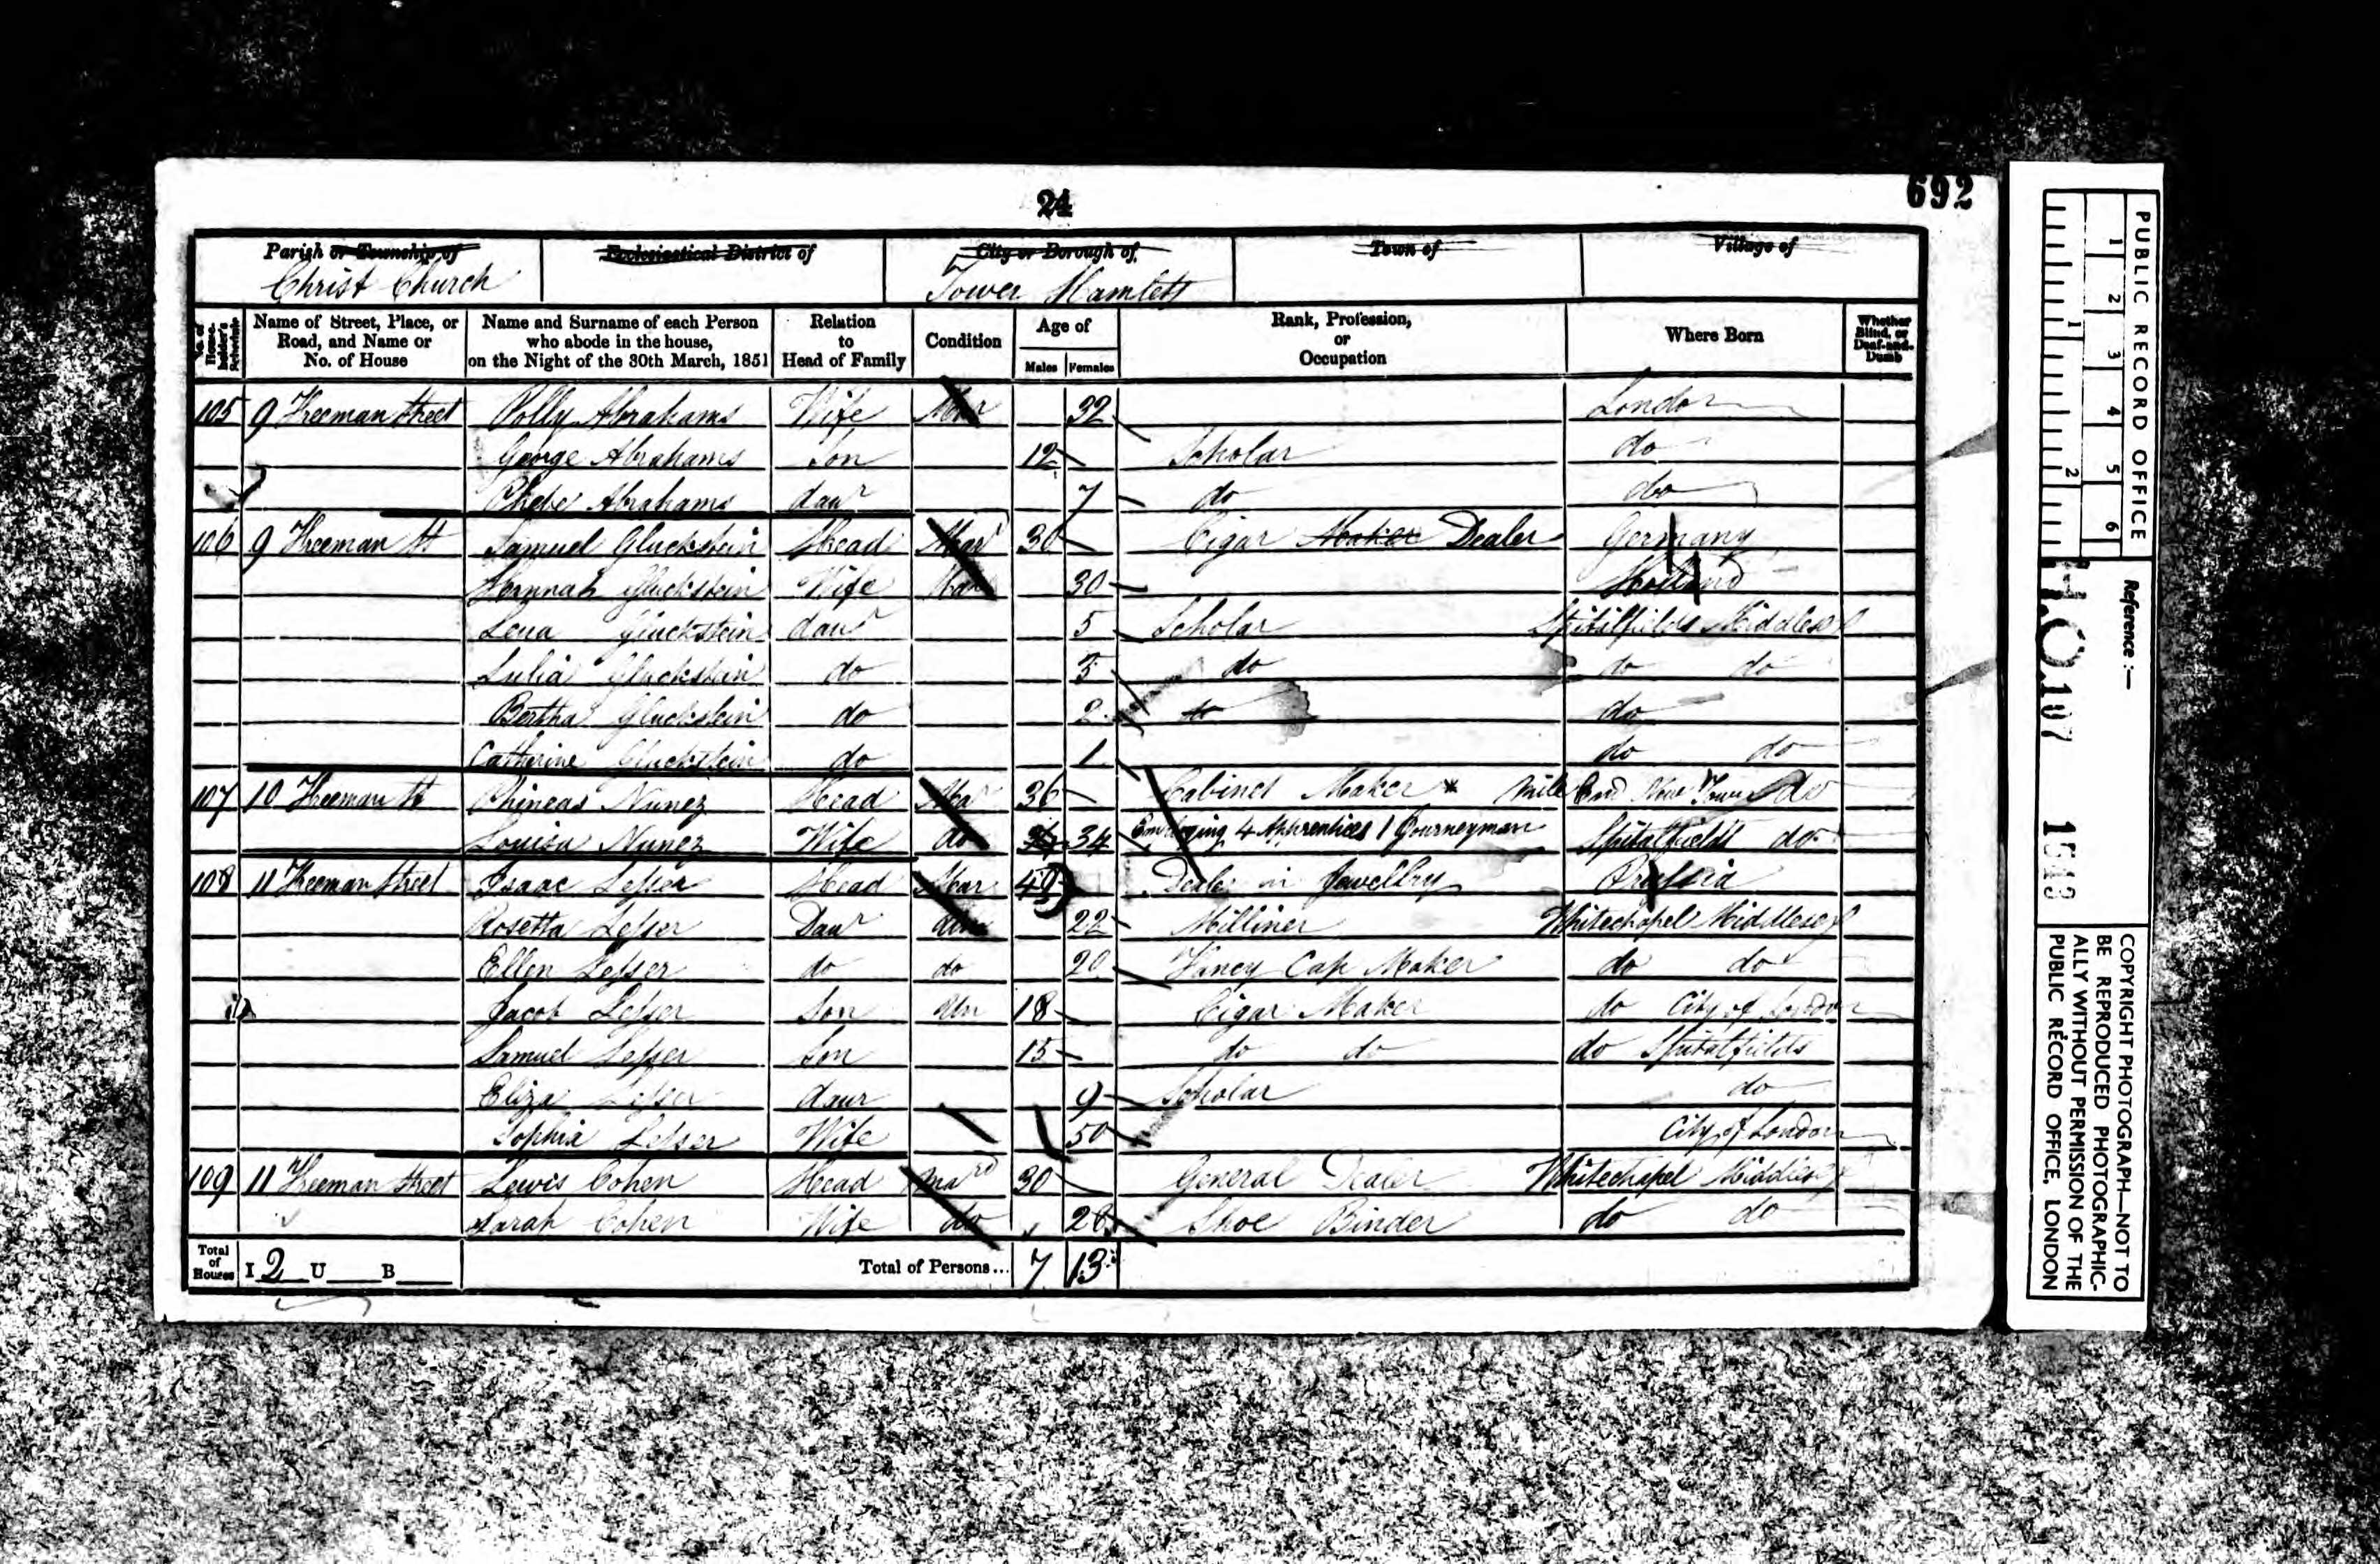 24
692
Parish or Township of
Ecclesiastical District of
City or Borough of
Town of
Village of
Christ Church
Tower Hamlets
No. of House-holder's Schedule
Name of Street, Place, or Road, and Name or No. of House
Name and Surname of each Person who abode in the house, on the Night of the 30th March, 1851
Relation to Head of Family
Condition
Age of
Males Females
Rank, Profession, or Occupation
Where Born
Whether Blind, or Deaf-and-Dumb
105 9 Freeman Street Polly Abrahams Wife Mar 32 London
George Abrahams Son 12 Scholar do
Phebe Abrahams daur 7 do do
106 9 Freeman St Samuel Gluckstein Head Mar 30 Cigar Maker Dealer Germany
Hannah Gluckstein Wife Mar 30 Holland
Lena Gluckstein daur 5 Scholar Spitalfields Middlesex
Julia Gluckstein do 3 do do do
Bertha Gluckstein do 2 do do
Catherine Gluckstein do 1 do do
107 10 Freeman St Phineas Nunez Head Mar 36 Cabinet Maker * Mile End New Town do
Louisa Nunez Wife do 34 Employing 4 Apprentices 1 Journeyman Spitalfields do
108 11 Freeman Street Isaac Lesser Head Mar 49 Dealer in Jewellry Prussia
Rosetta Lesser Daur Un 22 Milliner Whitechapel Middlesex
Ellen Lesser do do 20 Fancy Cap Maker do do
Jacob Lesser Son Un 18 Cigar Maker do City of London
Samuel Lesser Son 15 do do do Spitalfields
Eliza Lesser daur 9 Scholar do
Sophia Lesser Wife 50 City of London
109 11 Freeman Street Lewis Cohen Head Mard 30 General Dealer Whitechapel Middlesex
Sarah Cohen Wife do 28 Shoe Binder do do
Total of Houses I 2 U B Total of Persons... 7 13
PUBLIC RECORD OFFICE
1 2 3 4 5 6
1 2
Reference :-
H.O. 107 1543
COPYRIGHT PHOTOGRAPH—NOT TO
BE REPRODUCED PHOTOGRAPHIC-
ALLY WITHOUT PERMISSION OF THE
PUBLIC RECORD OFFICE, LONDON